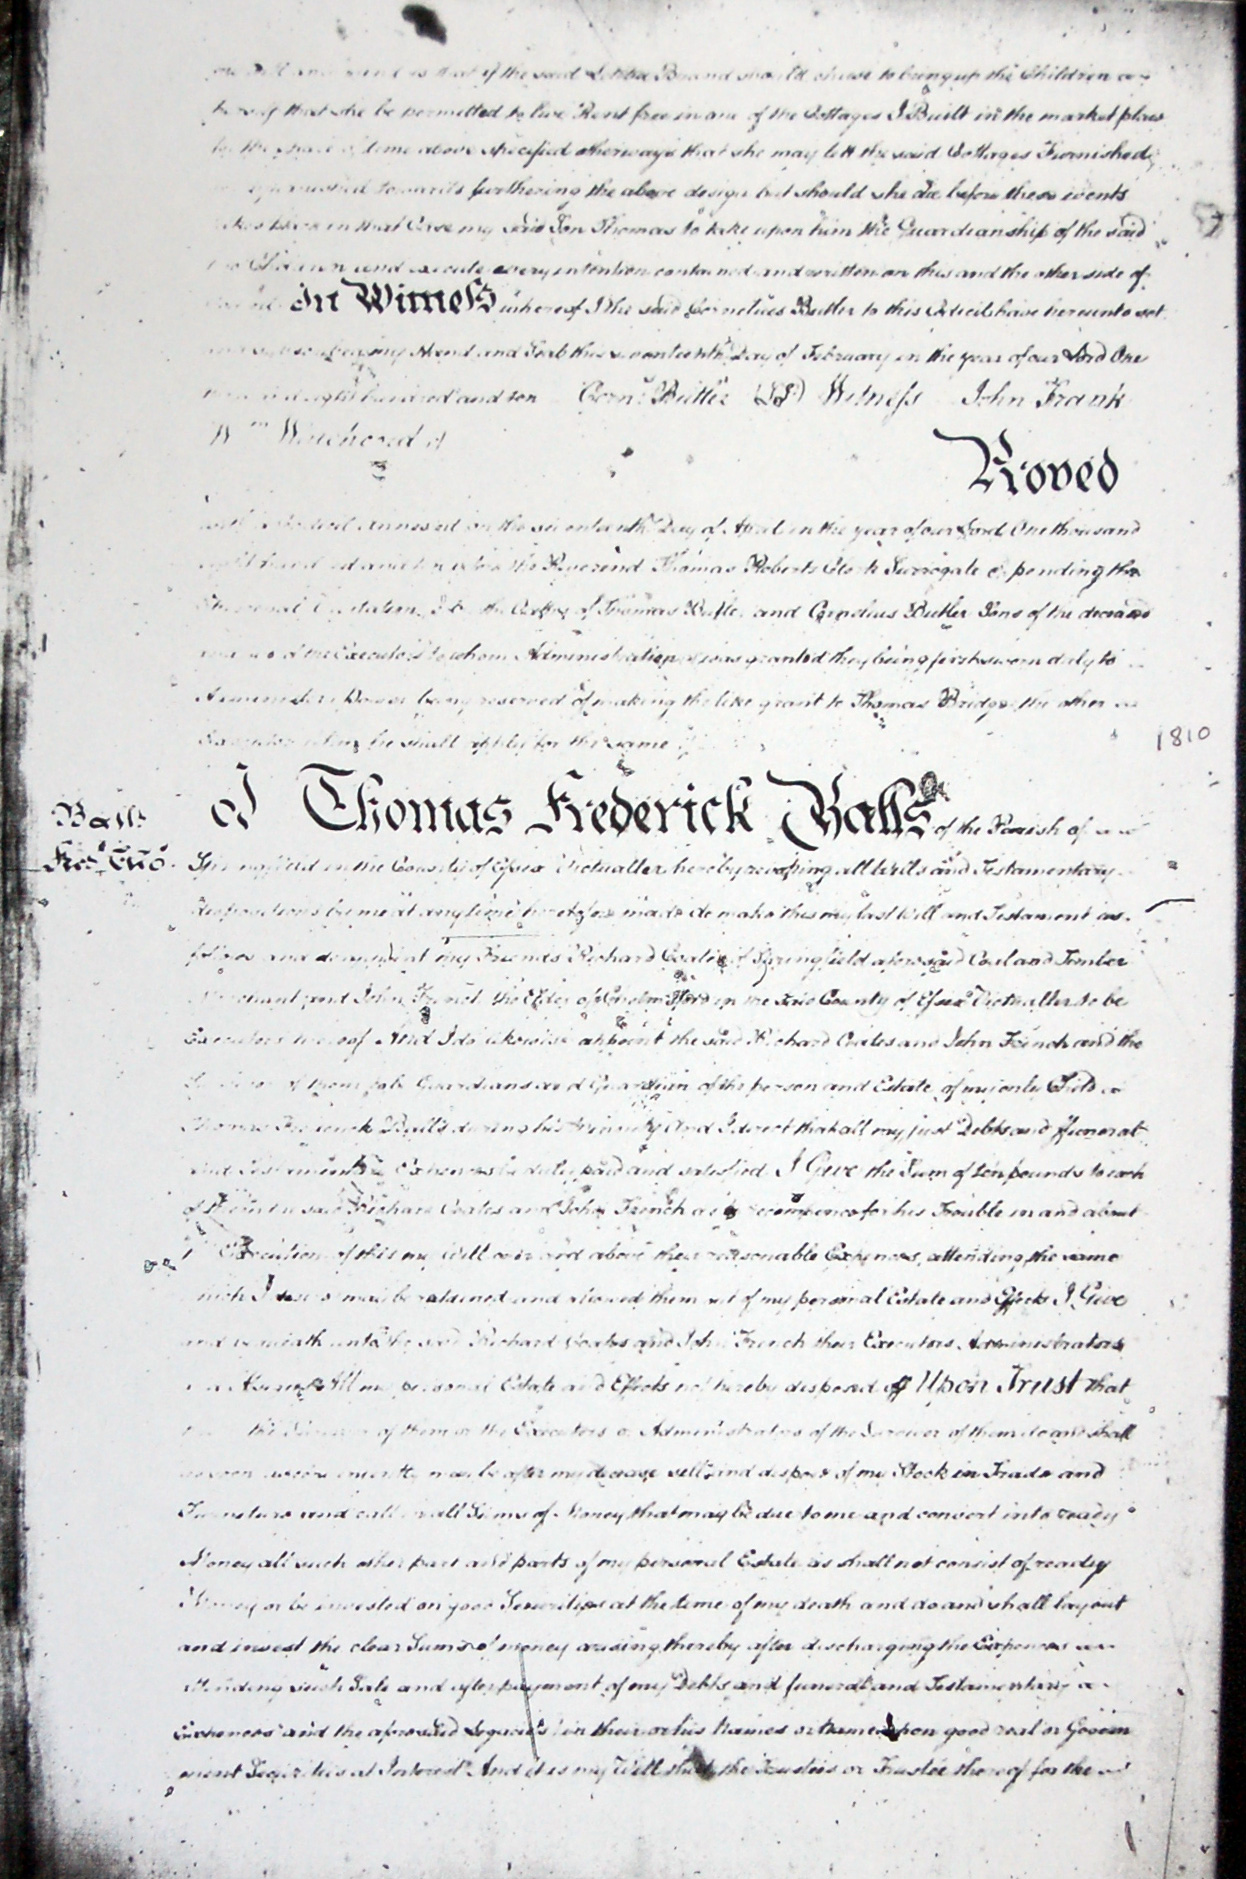 is that if the said Brand should chuse to bring up the Children
that she be permitted to live Rent free in one of the Cottages I Built in the market place
time above specified otherways that she may lett the said Cottages Furnished
towards furthering the above design but should she die before these events
in that Case my said Son Thomas to take upon him the Guardianship of the said
and execute every intention contained and written on this and the other side of
In Witness whereof I the said Cornelius Butler to this Codicil have hereunto set
my Hand and Seal this seventeenth Day of February in the year of our Lord One
eight hundred and ten Corn.s Butler (LS) Witness John Frank
Wm
Proved
with Codicil annexed on the seventeenth Day of April in the year of our Lord One thousand
eight hundred and ten before the Reverend Thomas Roberts Clerk Surrogate &c pending the
the Oaths of Thomas Butler and Cornelius Butler Sons of the deceased
and two of the Executors to whom Administration was granted they being first sworn duly to
Administer Power being reserved of making the like grant to Thomas Bridge the other
Executor when he shall apply for the same
1810
Balls
I Thomas Frederick Balls of the Parish of
Fred. Tho.s
Springfield in the County of Essex Victualler hereby revoking all Wills and Testamentary
dispositions by me at any time heretofore made do make this my last Will and Testament as
follows and appoint my Friends Richard Coates of Springfield aforesaid Coal and Timber
Merchant and John French the Elder of Chelmsford in the said County of Essex Victualler to be
Executors thereof And I do likewise appoint the said Richard Coates and John French and the
Survivor of them sole Guardians and Guardian of the person and Estate of my only Child
Thomas Frederick Balls during his minority And I direct that all my just Debts and funeral
and testamentary Expences be duly paid and satisfied I Give the Sum of ten pounds to each
of them the said Richard Coates and John French as a recompence for his Trouble in and about
Execution of this my Will over and above their reasonable Expences attending the same
which I desire may be retained and allowed them out of my personal Estate and Effects I Give
and bequeath unto the said Richard Coates and John French their Executors Administrators
and Assigns All my personal Estate and Effects not hereby disposed off Upon Trust that
the Survivor of them or the Executors or Administrators of the Survivor of them do and shall
as soon as conveniently may be after my decease sell and dispose of my Stock in Trade and
Furniture and call in all Sums of Money that may be due to me and convert into ready
Money all such other part and parts of my personal Estate as shall not consist of ready
Money or be invested on good Securities at the time of my death and do and shall lay out
and invest the clear Sums of money arising thereby after discharging the Expences
attending such Sale and after payment of my Debts and funeral and Testamentary
Expences and the aforesaid Legacies in their or his names or name upon good real or Govern
ment Securities at Interest And it is my Will that the Trustees or Trustee thereof for the